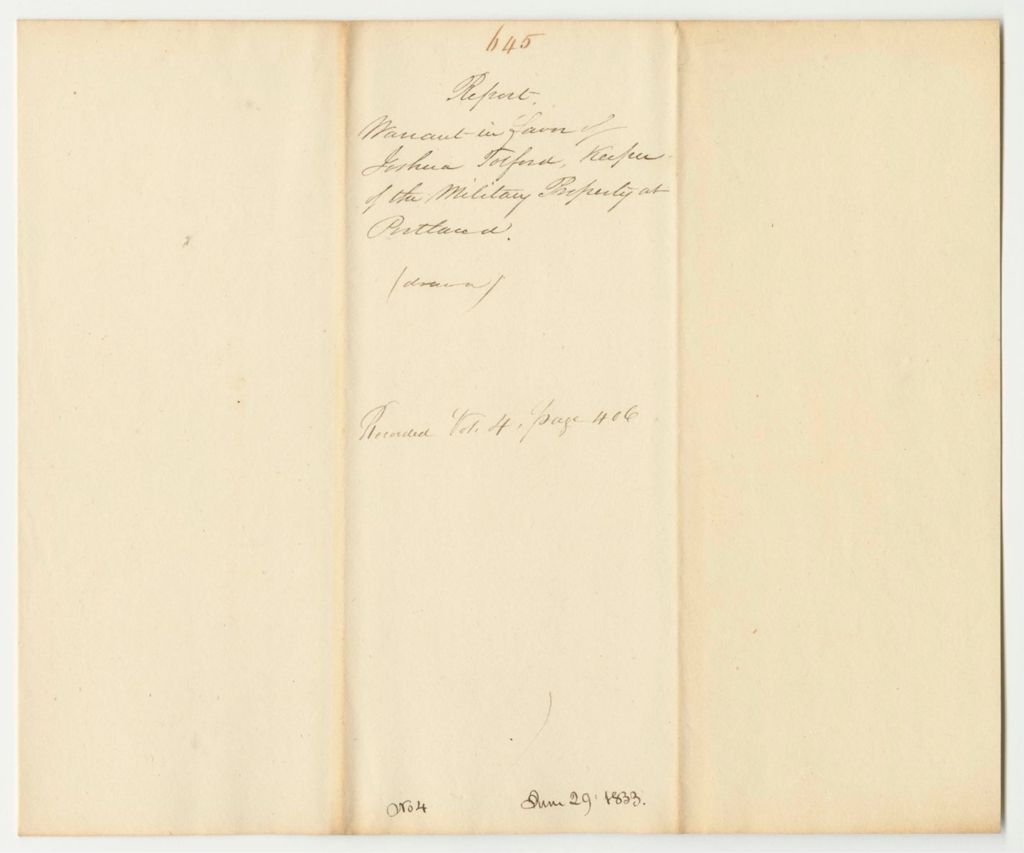 645
Report.
Warrant in favor of
Joshua Tolford, Keeper
of the Military Property at
Portland.
(drawn)
Recorded Vol. 4, page 406
No 4
June 29. 1833.